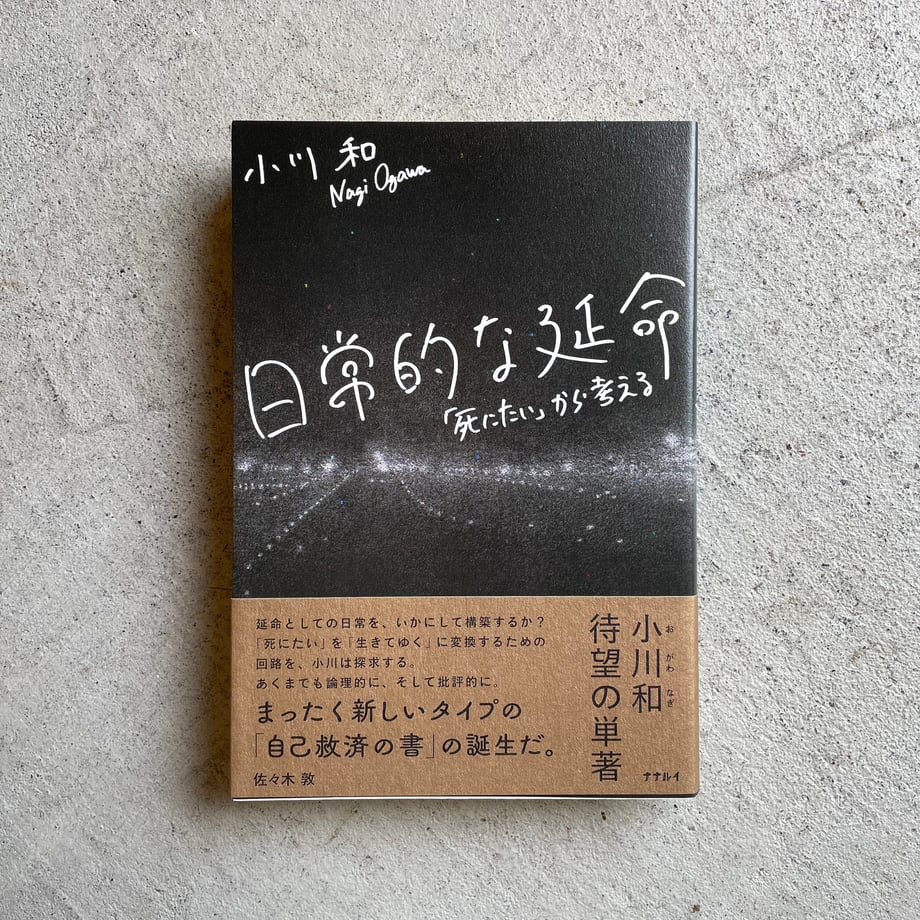 小川 和
Nagi Ogawa
日常的な延命
「死にたい」から考える
延命としての日常を、いかにして構築するか?
「死にたい」を「生きてゆく」に変換するための
回路を、小川は探求する。
あくまでも論理的に、そして批評的に。
まったく新しいタイプの
「自己救済の書」の誕生だ。
佐々木 敦
小川和
おがわ なぎ
待望の単著
ナナルイ